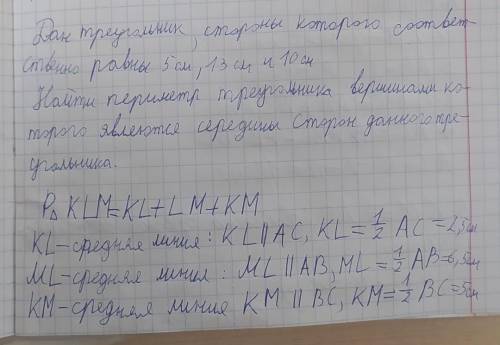 Дан треугольник, стороны которого соответ-
ственно равны 5 см, 13 см и 10 см
Найти периметр треугольника вершинами ко-
торого явлеются середины сторон данного тре-
угольника.
P△ KLM=KL+LM+KM
KL-средняя линия: KL∥AC, KL=1/2 AC=2,5см
ML-средняя линия: ML∥AB, ML=1/2 AB=6,5см
KM-средняя линия KM∥BC, KM=1/2 BC=5см